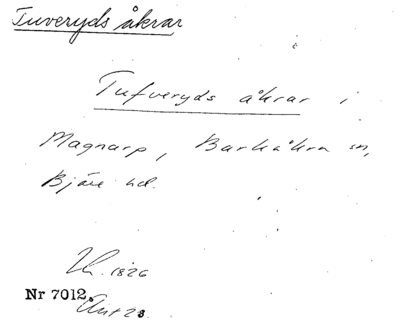 Tuveryds åkrar
Tufveryds åkrar i
Magnarp, Barkåkra sn,
Bjäre hd.
1826
Nr 7012.
23.